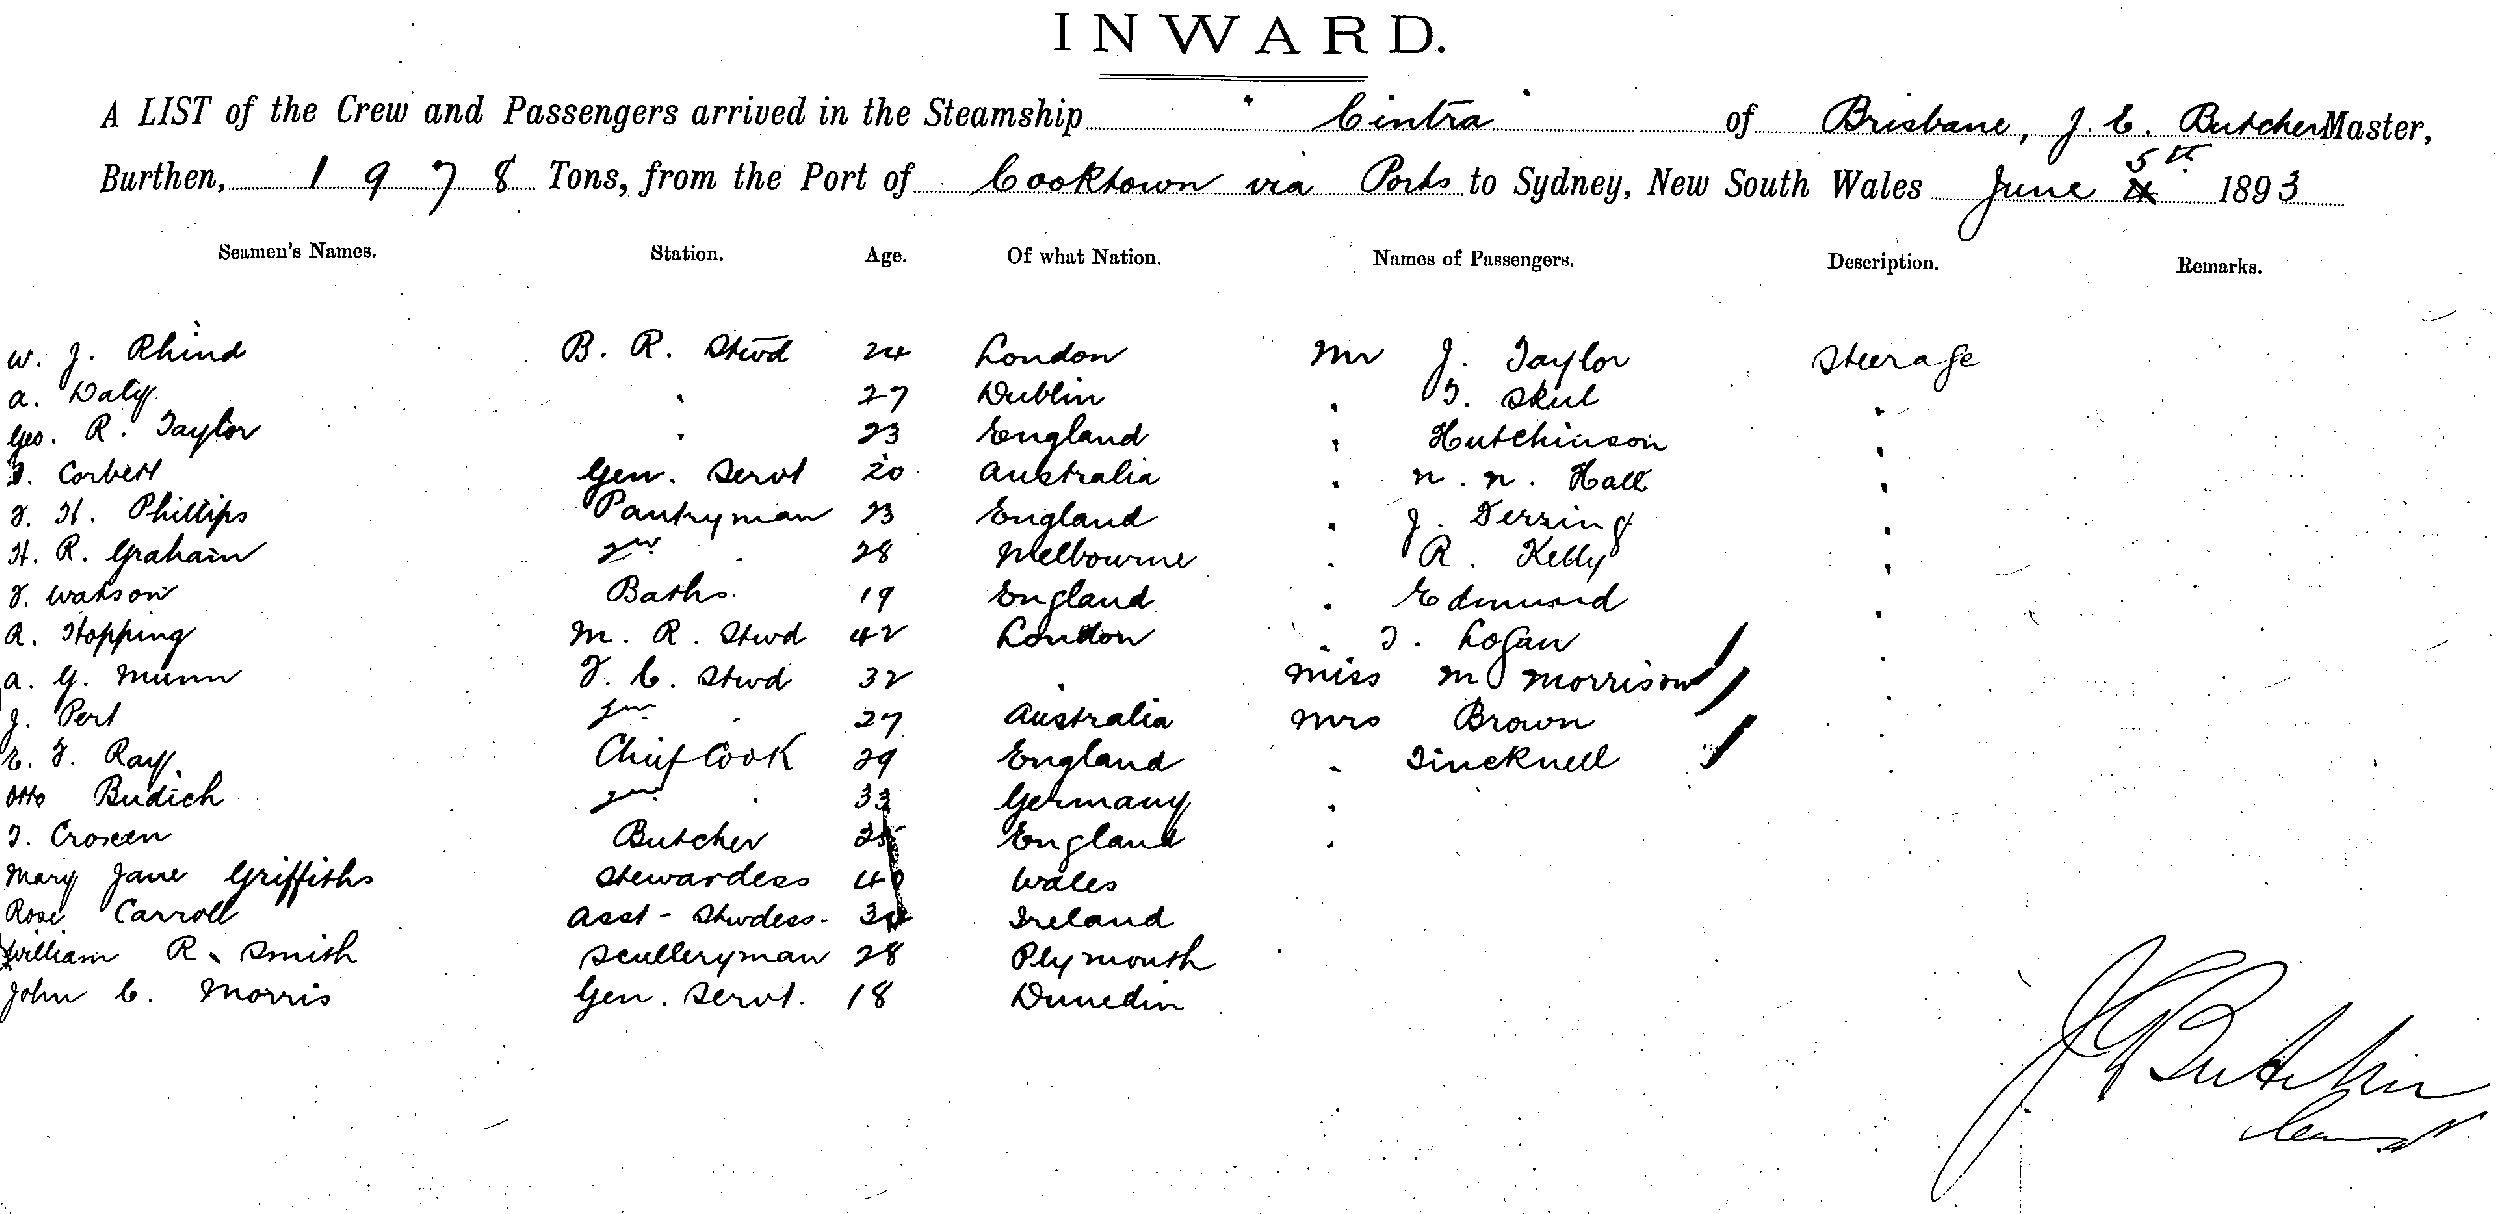 INWARD.
A LIST of the Crew and Passengers arrived in the Steamship " Cintra " of Brisbane, J. C. Butcher Master,
Burthen, 1978 Tons, from the Port of Cooktown via Ports to Sydney, New South Wales June 5th 1893
Seamen's Names. Station. Age. Of what Nation. Names of Passengers. Description. Remarks.
W. J. Rhind B. R. Stwd 24 London Mr J. Taylor Steerage
A. Daly " 27 Dublin " T. Skul "
Geo. R. Taylor " 23 England " Hutchinson "
T. Corbett Gen. Servt 20 Australia " N. N. Hall "
F. H. Phillips Pantryman 23 England " J. Derring "
H. R. Graham 2nd " 28 Melbourne " R. Kelly "
F. Watson Baths. 19 England " Edmund "
A. Hopping M. R. Stwd 42 London " T. Logan "
A. G. Munn F. C. Stwd 32 " Miss M Morrison "
J. Pert 2nd " 27 Australia Mrs Brown "
E. F. Ray Chief Cook 29 England " Tincknell "
Otto Budich 2nd " 33 Germany "
T. Butcher England "
Mary Jane Griffiths Stewardess 40 Wales
Rose Carroll Asst - Stwdess. Ireland
William R. Smith Sculleryman 28 Plymouth
John C. Morris Gen. Servt. 18 Dunedin
J C Butcher